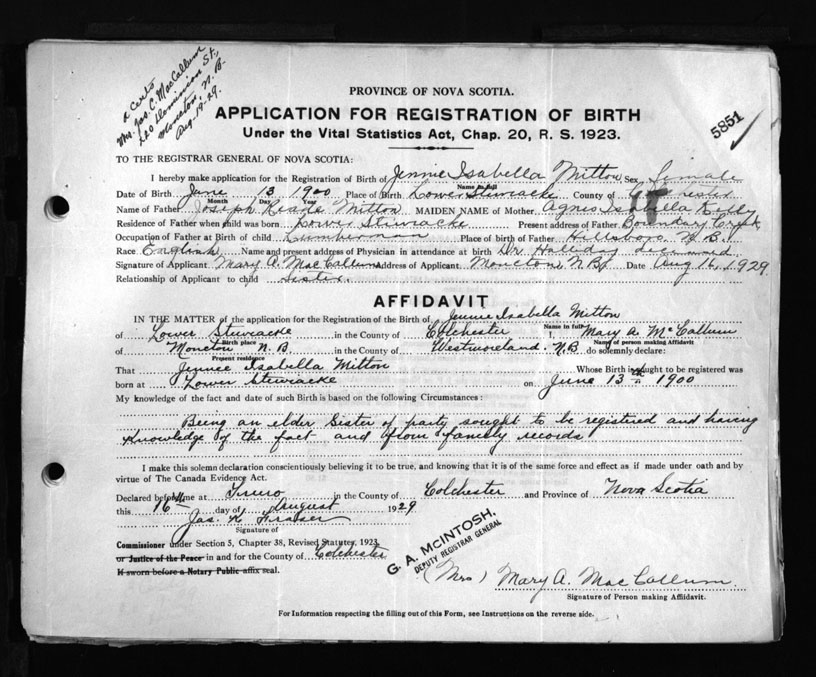 2 Certs
Mrs. Jas. C. MacCallum
Dominion St.,
Moncton, N. B.
Aug-19-29.
5851
PROVINCE OF NOVA SCOTIA.
APPLICATION FOR REGISTRATION OF BIRTH
Under the Vital Statistics Act, Chap. 20, R. S. 1923.
TO THE REGISTRAR GENERAL OF NOVA SCOTIA:
I hereby make application for the Registration of Birth of Jennie Isabella Mitton Sex female
Name in full
Date of Birth June 13 1900 Place of Birth Lower Stewiacke County of
Month Day Year
Name of Father Joseph Mitton MAIDEN NAME of Mother Agnes Isabella
Residence of Father when child was born Lower Stewiacke Present address of Father Boundary Creek
Occupation of Father at Birth of child Lumberman Place of birth of Father Hillsboro N.B.
Race English Name and present address of Physician in attendance at birth Dr. Halliday deceased
Signature of Applicant Mary A. MacCallum Address of Applicant Moncton, N.B. Date Aug 16, 1929
Relationship of Applicant to child Sister
AFFIDAVIT
IN THE MATTER of the application for the Registration of the Birth of Jennie Isabella Mitton
Name in full
of Lower Stewiacke in the County of Colchester I, Mary A. McCallum
Birth place Name of person making Affidavit
of Moncton N.B in the County of Westmoreland N.B do solemnly declare:
Present residence
That Jennie Isabella Mitton Whose Birth is sought to be registered was
born at Lower Stewiacke on June 13th 1900
My knowledge of the fact and date of such Birth is based on the following Circumstances:
Being an elder Sister of party sought to be registered and having
knowledge of the fact and from family records
I make this solemn declaration conscientiously believing it to be true, and knowing that it is of the same force and effect as if made under oath and by
virtue of The Canada Evidence Act.
Declared before me at Truro in the County of Colchester and Province of Nova Scotia
this 16th day of August 1929
Jas. Fraser
Signature of
Commissioner under Section 5, Chapter 38, Revised Statutes, 1923
or Justice of the Peace in and for the County of Colchester
If sworn before a Notary Public affix seal.
G. A. McINTOSH,
DEPUTY REGISTRAR GENERAL
(Mrs) Mary A. MacCallum
Signature of Person making Affidavit.
For Information respecting the filling out of this Form, see Instructions on the reverse side.